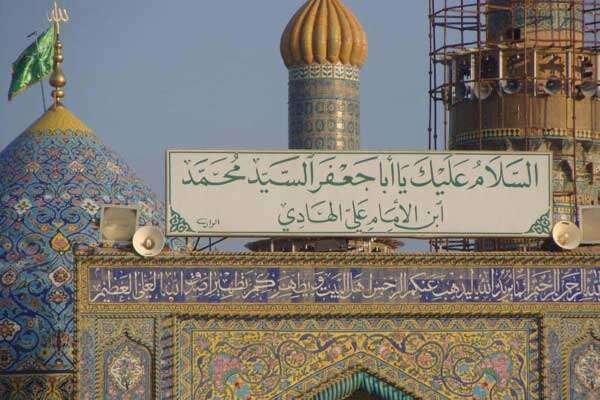 السَّلَامُ عَلَيْكَ يَا أَبَا جَعْفَرٍ السَّيِّدِ مُحَمَّدْ
ابْنِ الْإِمَامِ عَلِيِّ الْهَادِي
الله الرحمن الرحيم إنما يريد الله ليذهب عنكم الرجس أهل البيت ويطهركم تطهيرا صدق الله العلي العظيم